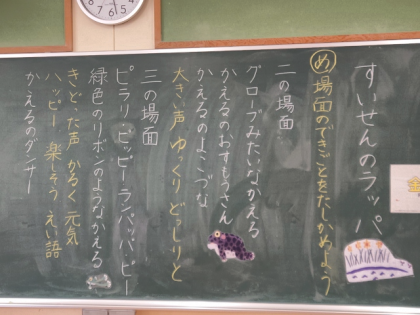 すいせんのラッパ
め 場面のできごとをたしかめよう
二の場面
グローブみたいなかえる
かえるのおすもうさん
かえるのよこづな
大きい声 ゆっくり どっしりと
三の場面
ピラリ・ピッピー ランパッパ・ピー
緑色のリボンのようなかえる
きどった声 かるく 元気
ハッピー 楽しそう えい語
かえるのダンサー
金